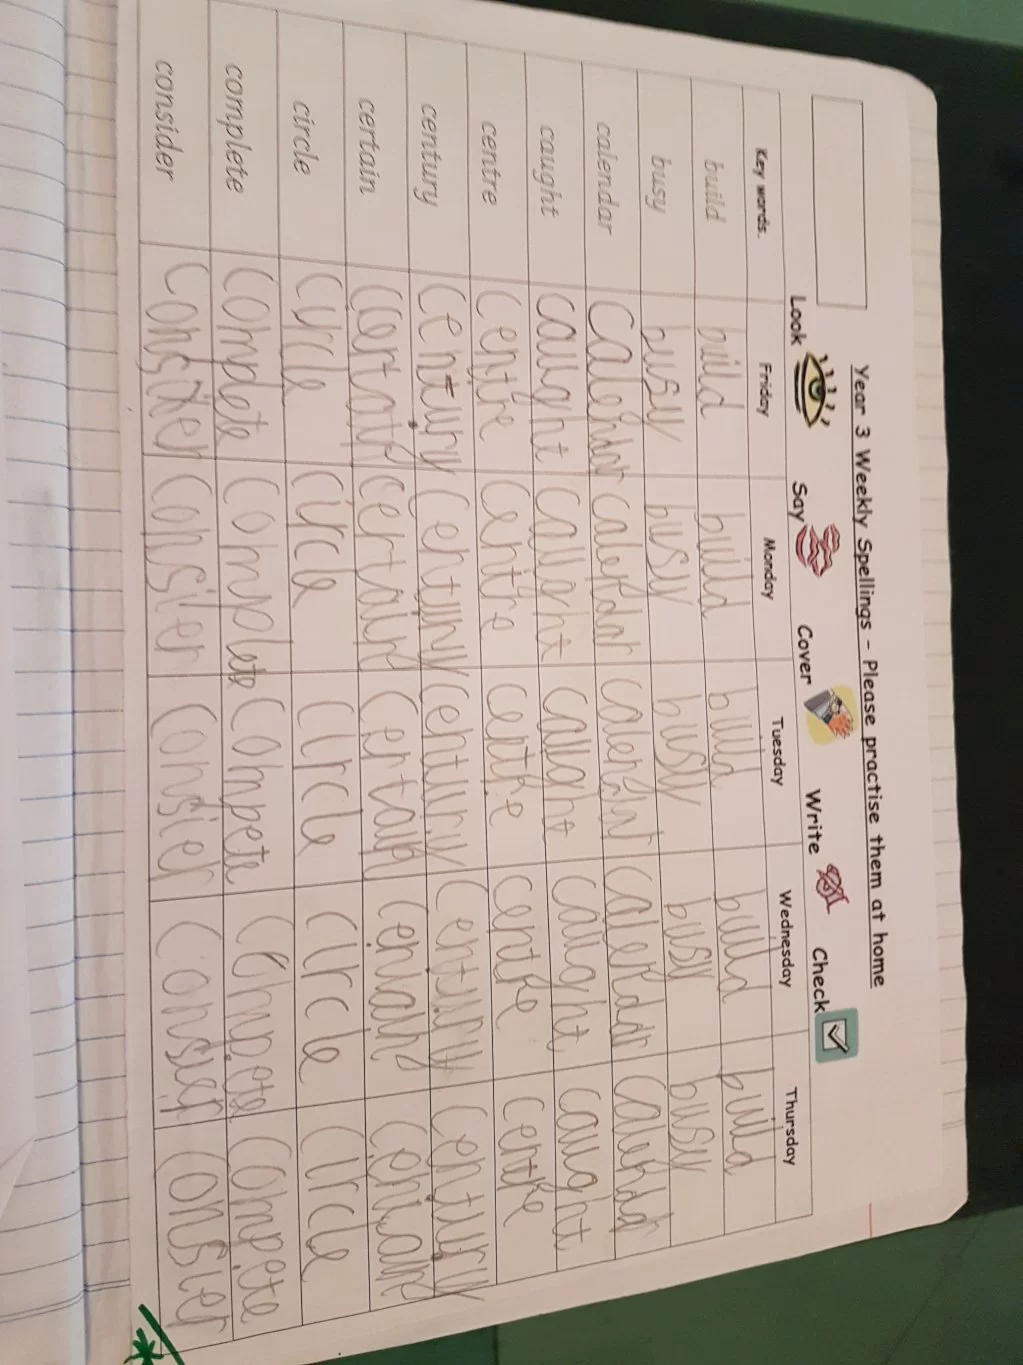 Year 3 Weekly Spellings - Please practise them at home
Look Say Cover Write Check
Key words. Friday Monday Tuesday Wednesday Thursday
build build build build build build
busy busy busy busy busy busy
calendar Calendar calendar calendar calerdar calerdar
caught caught caught caught caught caught
centre centre centre centre centre centre
century century century century century century
certain certain certain certain
circle circle circle circle circle circle
complete complete complete compete compete compete
consider consider consier consier consier consier